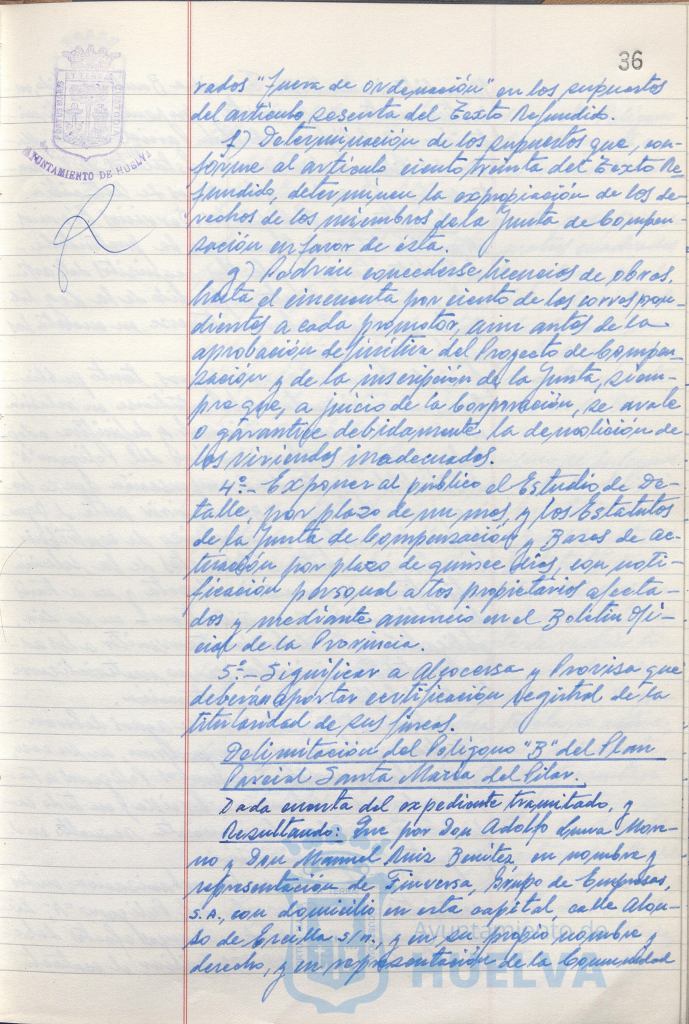 36
AYUNTAMIENTO DE HUELVA
rados "fuera de ordenación" en los supuestos
del artículo sesenta del Texto Refundido.
f) Determinación de los supuestos que, con-
forme al artículo ciento treinta del Texto Re-
fundido, determinen la expropiación de los de-
rechos de los miembros de la Junta de Compen-
sación en favor de ésta.
g) Podrán concederse licencias de obras,
hasta el cincuenta por ciento de las correspon-
dientes a cada promotor, aún antes de la
aprobación definitiva del Proyecto de Compen-
sación y de la inscripción de la Junta, siem-
pre que, a juicio de la Corporación, se avale
o garantice debidamente la demolición de
las viviendas inadecuadas.
4º.- Exponer al público el Estudio de De-
talle, por plazo de un mes, y los Estatutos
de la Junta de Compensación y Bases de ac-
tuación por plazo de quince días, con noti-
ficación personal a los propietarios afecta-
dos y mediante anuncio en el Boletín Ofi-
cial de la Provincia.
5º.- Significar a Algocersa y Provisa que
deberán aportar certificación registral de la
titularidad de sus fincas.
Delimitación del Polígono "B" del Plan
Parcial Santa María del Pilar.
Dada cuenta del expediente tramitado, y
Resultando: Que por Don Adolfo More-
no y Don Manuel Ruiz Benítez, en nombre y
representación de Finversa, Grupo de Empresas,
S.A., con domicilio en esta capital, calle Alon-
so de Ercilla s/n., y en su propio nombre y
derecho, y en representación de la Comunidad
Ayuntamiento de
HUELVA